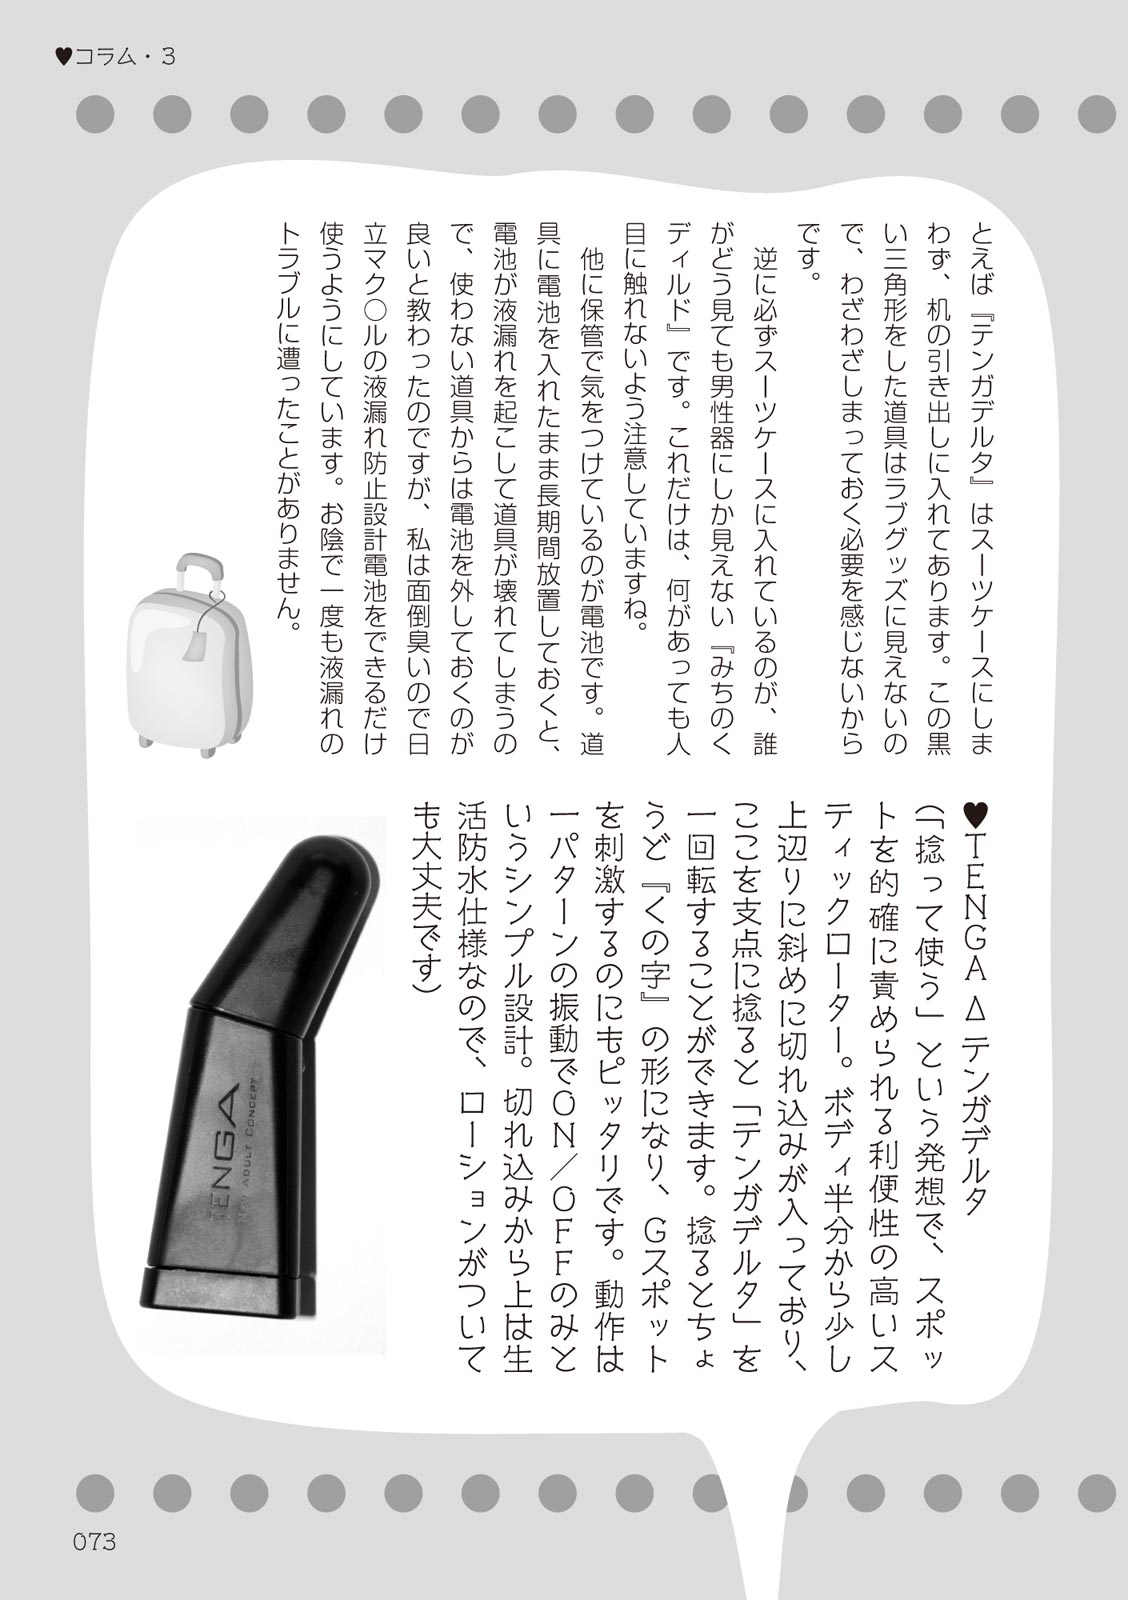 ♥コラム・3
とえば『テンガデルタ』はスーツケースにしま
わず、机の引き出しに入れてあります。この黒
い三角形をした道具はラブグッズに見えないの
で、わざわざしまっておく必要を感じないから
です。
逆に必ずスーツケースに入れているのが、誰
がどう見ても男性器にしか見えない『みちのく
ディルド』です。これだけは、何があっても人
目に触れないよう注意していますね。
他に保管で気をつけているのが電池です。道
具に電池を入れたまま長期間放置しておくと、
電池が液漏れを起こして道具が壊れてしまうの
で、使わない道具からは電池を外しておくのが
良いと教わったのですが、私は面倒臭いので日
立マク○ルの液漏れ防止設計電池をできるだけ
使うようにしています。お陰で一度も液漏れの
トラブルに遭ったことがありません。
♥TENGA Δ テンガデルタ
(「捻って使う」という発想で、スポッ
トを的確に責められる利便性の高いス
ティックローター。ボディ半分から少し
上辺りに斜めに切れ込みが入っており、
ここを支点に捻ると「テンガデルタ」を
一回転することができます。捻るとちょ
うど『くの字』の形になり、Gスポット
を刺激するのにもピッタリです。動作は
一パターンの振動でON／OFFのみと
いうシンプル設計。切れ込みから上は生
活防水仕様なので、ローションがついて
も大丈夫です)
TENGA
NEW ADULT CONCEPT
073